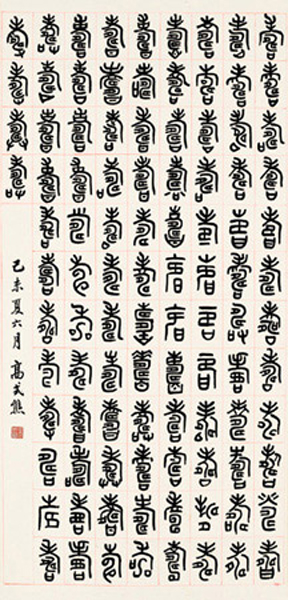 壽壽壽壽壽壽壽壽壽壽壽壽
壽壽壽壽壽壽壽壽壽壽壽壽
壽壽壽壽壽壽壽壽壽壽壽壽
壽壽壽壽壽壽壽壽壽壽壽壽
壽壽壽壽壽壽壽壽壽壽壽壽
壽壽壽壽壽壽壽壽壽壽壽壽
壽壽壽壽壽壽壽壽壽壽壽壽
壽壽壽壽壽壽壽壽壽壽壽壽
壽壽壽壽
己未夏六月 高式熊